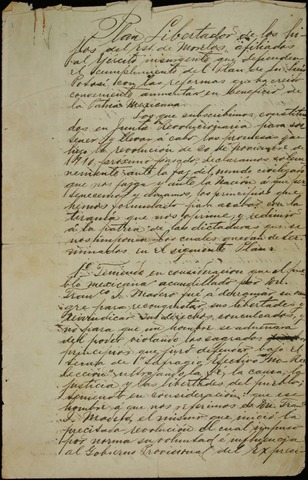 Plan Libertador de los hi-
jos del Est. de Morelos, afiliados
al Ejército insurgente que defienden
el cumplimiento del Plan de San Luis
Potosí con las reformas que ha creido
conveniente aumentar en beneficio de
la Patria Mexicana.
Los que subscribimos, constitui-
dos en Junta Revolucionaria para sos-
tener y llevar a cabo las promesas que
hizo la revolución de 20 de Noviembre de
1910, próximo pasado, declaramos solem-
nemente ante la faz del mundo civilizado
que nos juzga y ante la Nación a que
pertenecemos y amamos, los
hemos formulado para acabar con la
tiranía que nos oprime y redimir
á la patria de las dictaduras que se
nos imponen las cuales quedan deter-
minadas en el siguiente Plan:
1º. Teniendo en consideración que el pue-
blo mexicano acaudillado por Dn.
Franco. I. Madero fué a derramar su san-
gre para reconquistar sus libertades y
reivindicar sus derechos conculcados, y
no para que un hombre se adueñara
del poder violando los sagrados
principios que juró defender bajo el
lema de "Sufragio Efectivo" "No Ree-
lección" ultrajando la fé, la causa, la
justicia y las libertades del pueblo;
teniendo en consideración: que ese
hombre á que nos referimos es Dn. Fran
I. Madero, el mismo que inició la
precitada revolución el cual impuso
por norma su voluntad é influencia
al Gobierno Provisional del Ex Presi-